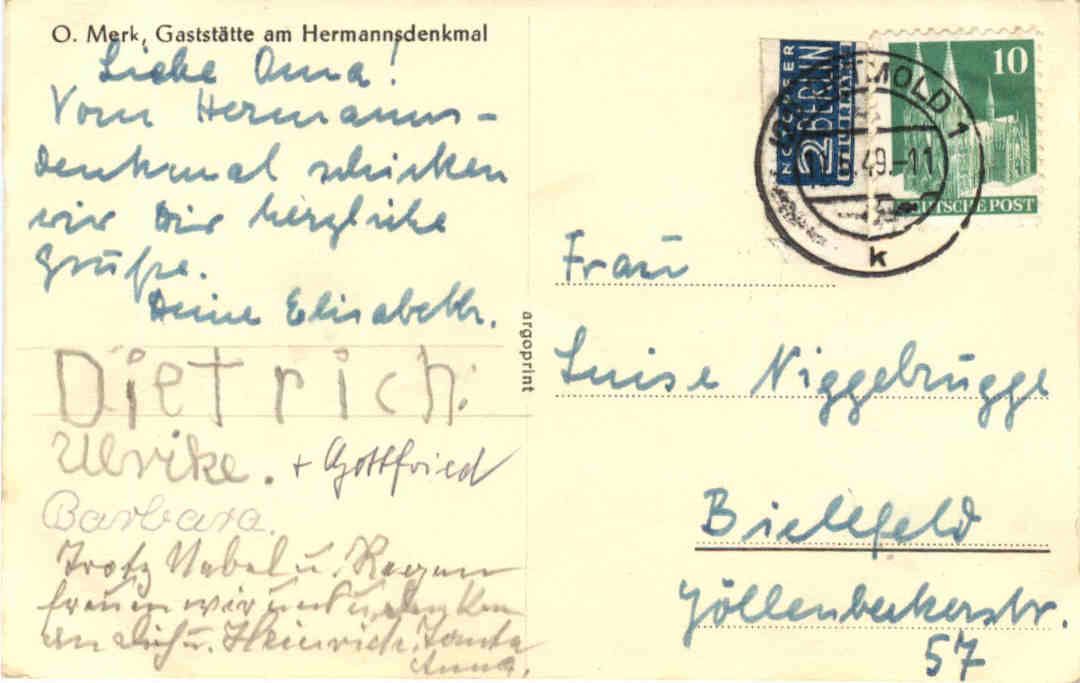 O. Merk, Gaststätte am Hermannsdenkmal
Liebe Oma!
Vom Hermanns-
denkmal schicken
wir Dir herzliche
Grüße.
Deine Elisabeth.
Dietrich
Ulrike. + Gottfried
Barbara.
Trotz Nebel u. Regen
freuen wir uns u. denken
an Dich u. Heinrich. Tante
Anna.
argoprint
NOTOPFER
2 BERLIN
STEUERMARKE
10
DEUTSCHE POST
DETMOLD 1
49.-11
k
Frau
Luise Niggebrügge
Bielefeld
Jöllenbeckerstr.
57